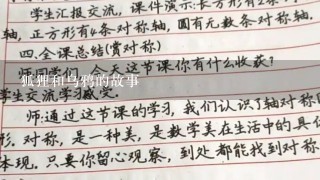 学生汇报交流，课件演示:长方形有2条
轴，正方形有4条对称轴，圆有无数条对称轴.
四.全课总结(赏对称)
师:同学们，今天这节课你有什么收获?
狐狸和乌鸦的故事
学生交流学习感受.
师:通过这节课的学习，我们认识了轴对称
形.对称，是一种美，是数学美在生活中的具
体现.只要你留心观察，到处都能找到对称